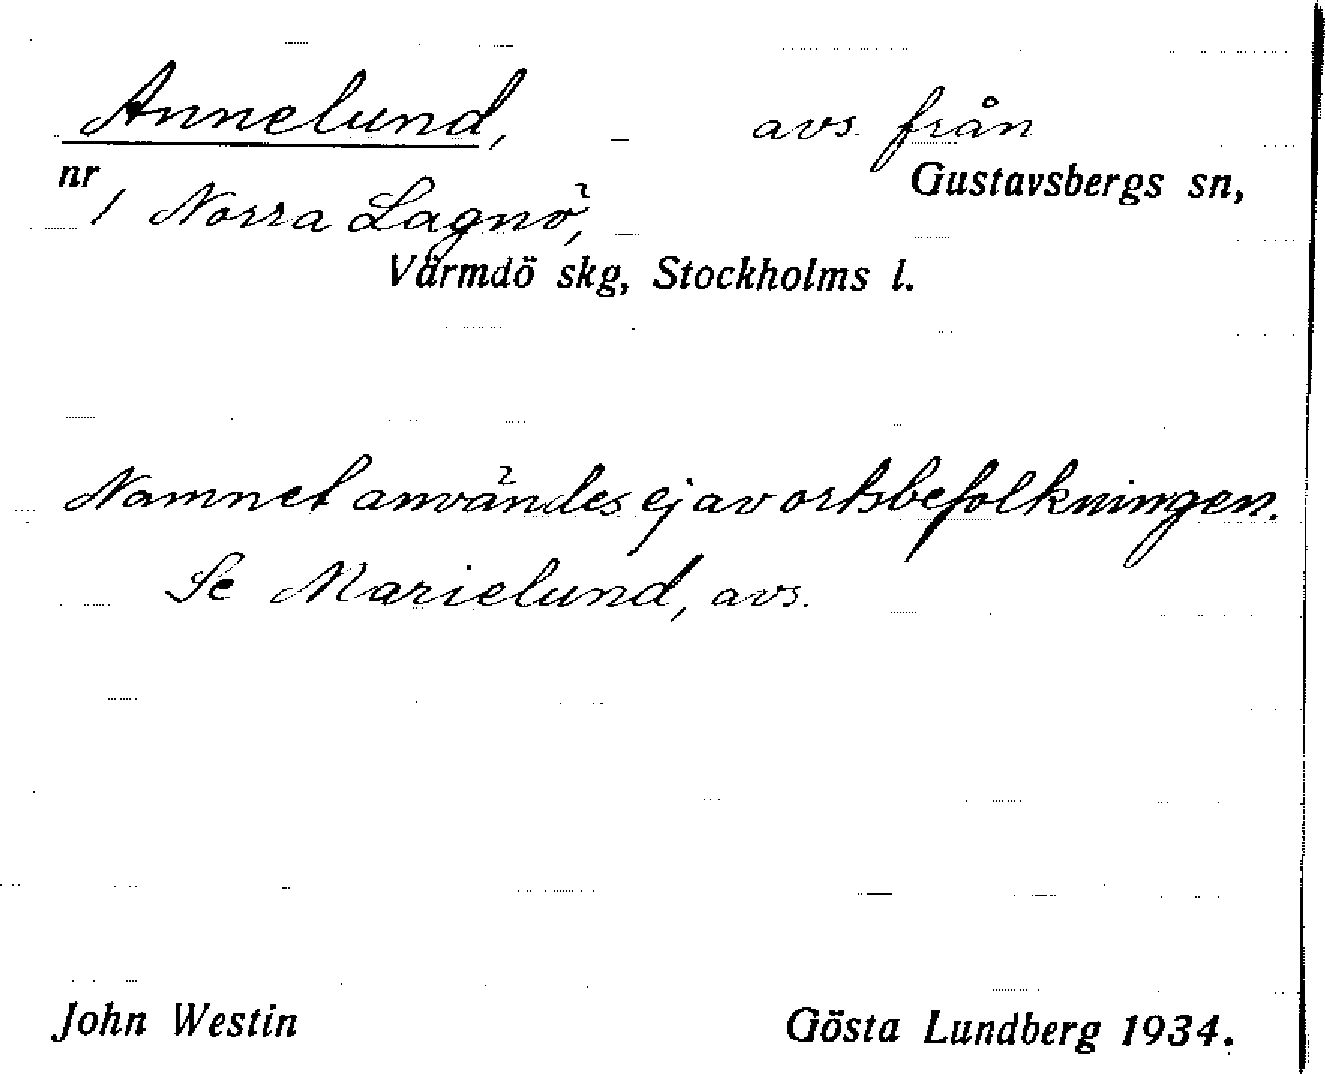 Annelund, avs. från
nr 1 Norra Lagnö, Gustavsbergs sn,
Värmdö skg, Stockholms l.
Namnet användes ej av ortsbefolkningen.
Se Marielund, avs.
John Westin Gösta Lundberg 1934.